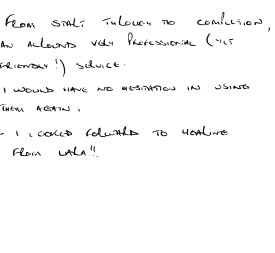 FROM START THROUGH TO COMPLETION,
AN ALLROUND VERY PROFESSIONAL (YET
FRIENDLY!) SERVICE.
I WOULD HAVE NO HESITATION IN USING
THEM AGAIN.
- I LOOKED FORWARD TO HEARING
FROM LARA!!